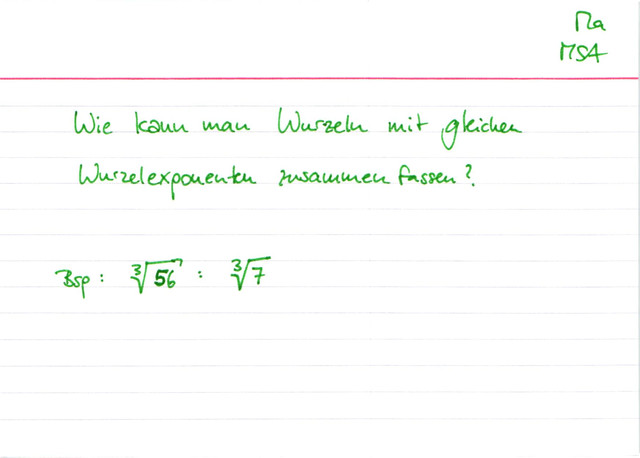 Ma
MSA
Wie kann man Wurzeln mit gleichen
Wurzelexponenten zusammenfassen?
Bsp: ∛56 : ∛7